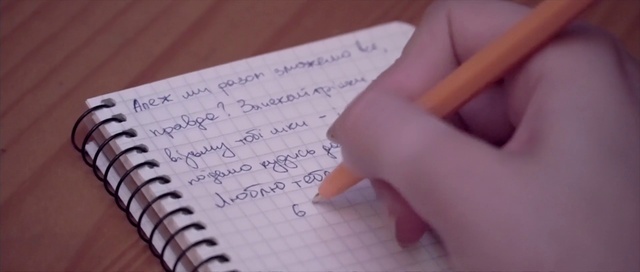 Але ж ми разом зможемо все,
правда? Зачекай трішки,
візьму тобі шки -
подамо кудись
Люблю тебе
6